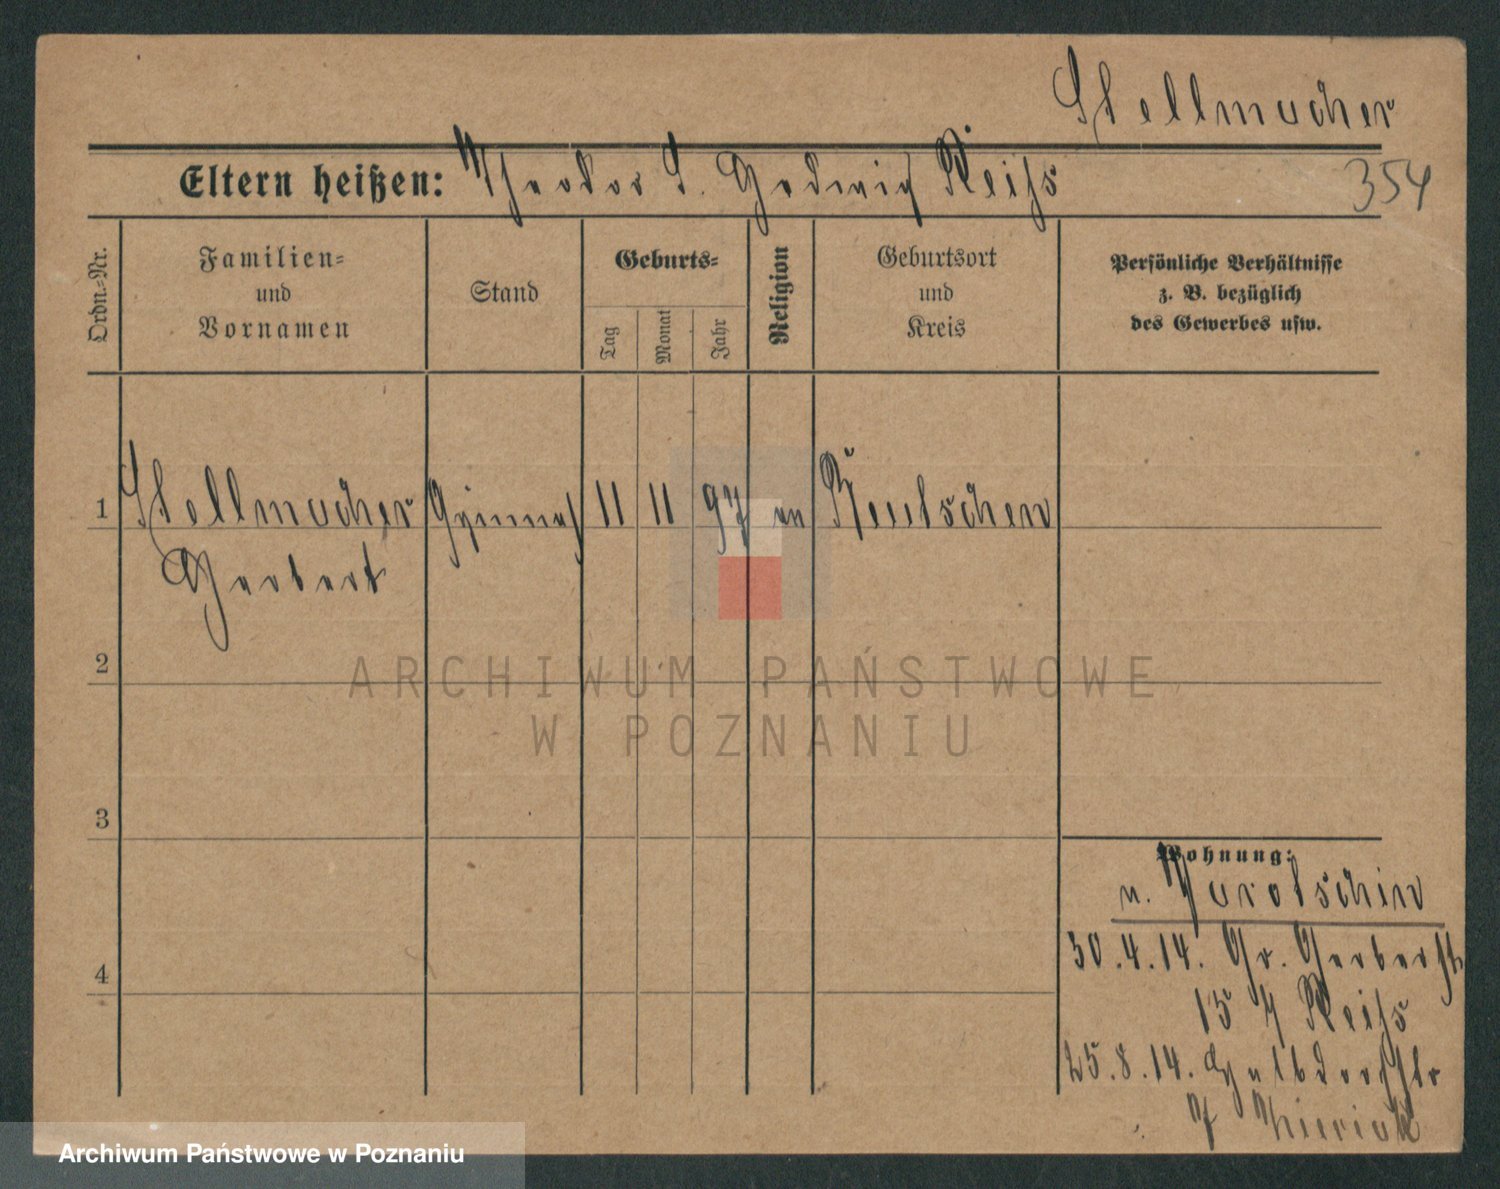 Stellmacher
Eltern heißen: Theodor u. Hedwig Reiß
354
Ordn.-Nr.
Familien-
und
Vornamen
Stand
Geburts-
Tag
Monat
Jahr
Religion
Geburtsort
und
Kreis
Persönliche Verhältnisse
z. B. bezüglich
des Gewerbes usw.
1
Stellmacher
Gymnas
11
11
97
ev
Neutschen
Herbert
2
3
4
Wohnung:
n. Jarotschin
30.4.14. Gr. Gerberst
15 Reiß
25.8.14. Halbdorfstr
ARCHIWUM PAŃSTWOWE
W POZNANIU
Archiwum Państwowe w Poznaniu